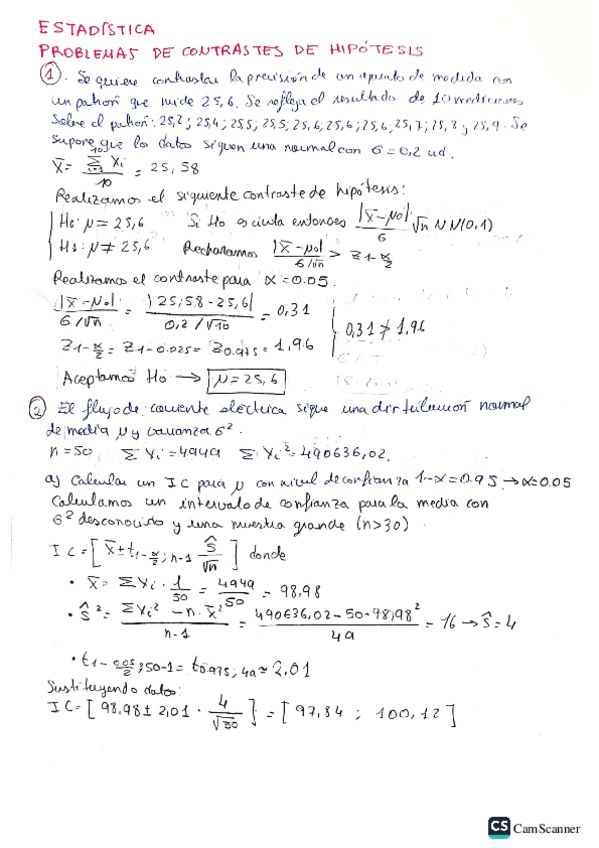 ESTADÍSTICA
PROBLEMAS DE CONTRASTES DE HIPÓTESIS
① . Se quiere contrastar la precisión de un aparato de medida con
un patrón que mide 25,6. Se refleja el resultado de 10 mediciones
sobre el patrón: 25,2; 25,4; 25,5; 25,5; 25,6, 25,6; 25,6, 25,7; 25,8; 25,9. Se
supone que los datos siguen una normal con σ = 0,2 ud.
x̄ = Σxi/10 = 25,58
Realizamos el siguiente contraste de hipótesis:
H0: μ = 25,6 Si H0 es cierta entonces |x̄-μ0|/σ √n ~ N(0,1)
H1: μ ≠ 25,6 Rechazamos |x̄-μ0|/(σ/√n) > Z1-α/2
Realizamos el contraste para α = 0.05.
|x̄-μ0|/(σ/√n) = |25,58-25,6|/(0,2/√10) = 0,31
0,31 ≯ 1,96
Z1-α/2 = Z1-0.025 = Z0.975 = 1,96
Aceptamos H0 → μ = 25,6
② El flujo de corriente eléctrica sigue una distribución normal
de media μ y varianza σ².
n = 50 Σxi = 4949 Σxi² = 490636,02.
a) Calcular un IC para μ con nivel de confianza 1-α = 0.95 → α = 0.05
Calculamos un intervalo de confianza para la media con
σ² desconocido y una muestra grande (n>30)
IC = [x̄ ± t1-α/2; n-1 ŝ/√n] donde
• x̄ = Σxi · 1/50 = 4949/50 = 98,98
• ŝ² = (Σxi² - n·x̄²)/(n-1) = (490636,02 - 50·98,98²)/49 = 16 → ŝ = 4
• t1-0.05/2; 50-1 = t0.975; 49 ≈ 2,01
Sustituyendo datos:
IC = [98,98 ± 2,01 · 4/√50] = [97,84 ; 100,12]
CS CamScanner